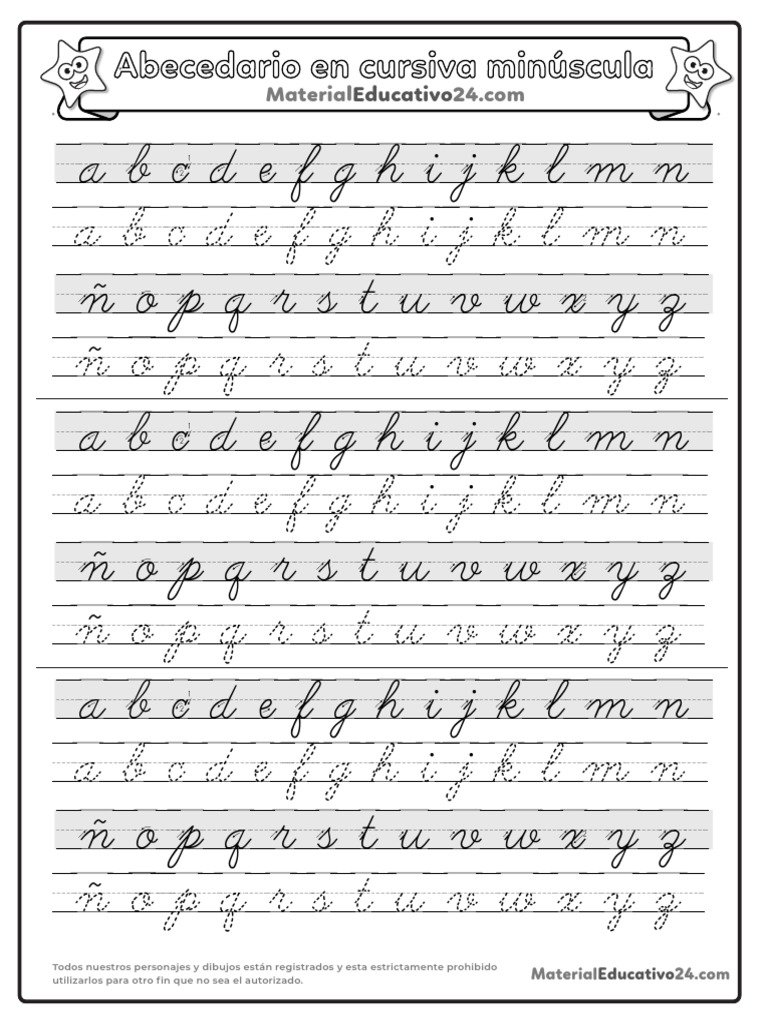 Abecedario en cursiva minúscula
MaterialEducativo24.com
a b c d e f g h i j k l m n
a b c d e f g h i j k l m n
ñ o p q r s t u v w x y z
ñ o p q r s t u v w x y z
a b c d e f g h i j k l m n
a b c d e f g h i j k l m n
ñ o p q r s t u v w x y z
ñ o p q r s t u v w x y z
a b c d e f g h i j k l m n
a b c d e f g h i j k l m n
ñ o p q r s t u v w x y z
ñ o p q r s t u v w x y z
Todos nuestros personajes y dibujos están registrados y esta estrictamente prohibido
utilizarlos para otro fin que no sea el autorizado.
MaterialEducativo24.com